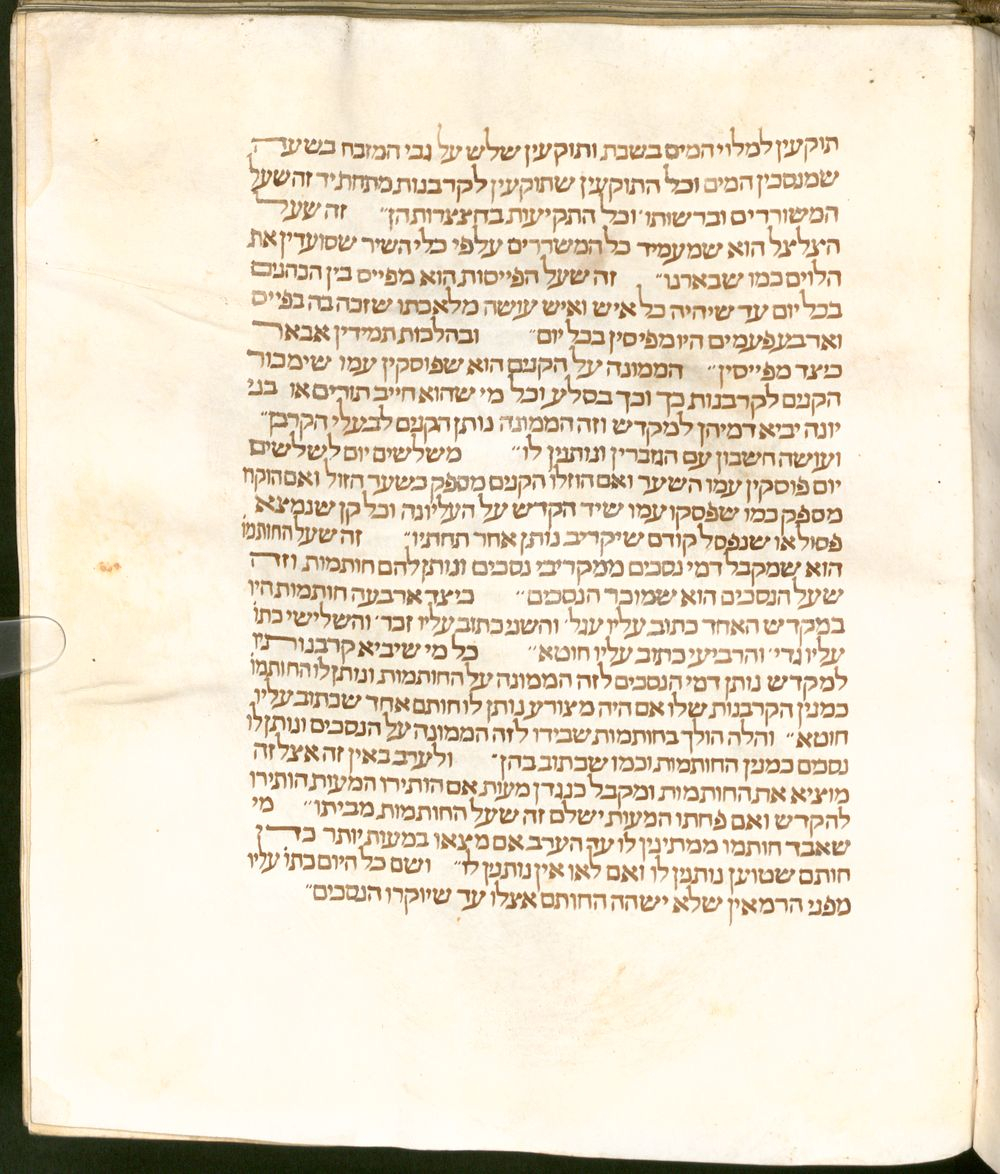 תוקעין למלוי המים בשבת ותוקעין שלש על גבי המזבח בשעה
שמנסכין המים וכל התוקעין שתוקעין לקרבנות מתחת יד זה שעל
המשוררים וברשותו׳ וכל התקיעות בחצצרותהן״ זה שעל
הצלצל הוא שמעמיד כל המשררים על פי כלי השיר שסועדין את
הלוים כמו שבארנו״ זה שעל הפייסות הוא מפייס בין הכהנים
בכל יום עד שיהיה כל איש ואיש עושה מלאכתו שזכה בה בפייס
וארבע פעמים היו מפיסין בכל יום״ ובהלכות תמידין אבאר
כיצד מפייסין״ הממונה על הקנים הוא שפוסקין עמו שימכור
הקנים לקרבנות כך וכך בסלע וכל מי שהוא חייב תורים או בני
יונה יביא דמיהן למקדש וזה הממונה נותן הקנים לבעלי הקרבן״
ועושה חשבון עם הגזברין ונותנין לו״ משלשים יום לשלשים
יום פוסקין עמו השער ואם הוזלו הקנים מספק כשער הזול ואם הוקרו
מספק כמו שפסקו עמו שיד הקדש על העליונה וכל קן שנמצא
פסול או שנפסל קודם שיקריב נותן אחר תחתיו״ זה שעל החותמו
הוא שמקבל דמי נסכים ממקריבי נסכים ונותן להם חותמות וזה
שעל הנסכים הוא שמוכר הנסכים״ כיצד ארבעה חותמות היו
במקדש האחד כתוב עליו עגל׳ והשני כתוב עליו זכר׳ והשלישי כתו
עליו גדי׳ והרביעי כתוב עליו חוטא״ כל מי שיביא קרבנותיו
למקדש נותן דמי הנסכים לזה הממונה על החותמות ונותן לו החותמו
כמנין הקרבנות שלו אם היה מצורע נותן לו חותם אחד שכתוב עליו
חוטא״ והלה הולך בחותמות שבידו לזה הממונה על הנסכים ונותן לו
נסכים כמנין החותמות וכמו שכתוב בהן״ ולערב באין זה אצל זה
מוציא את החותמות ומקבל כנגדן מעות אם הותירו המעות הותירו
להקדש ואם פחתו המעות ישלם זה שעל החותמות מביתו״ מי
שאבד חותמו ממתינין לו עד הערב אם מצאו במעות יותר כדן
חותם שטוען נותנין לו ואם לאו אין נותנין לו״ ושם כל היום כתו׳ עליו
מפני הרמאין שלא ישהה החותם אצלו עד שיוקרו הנסכים״